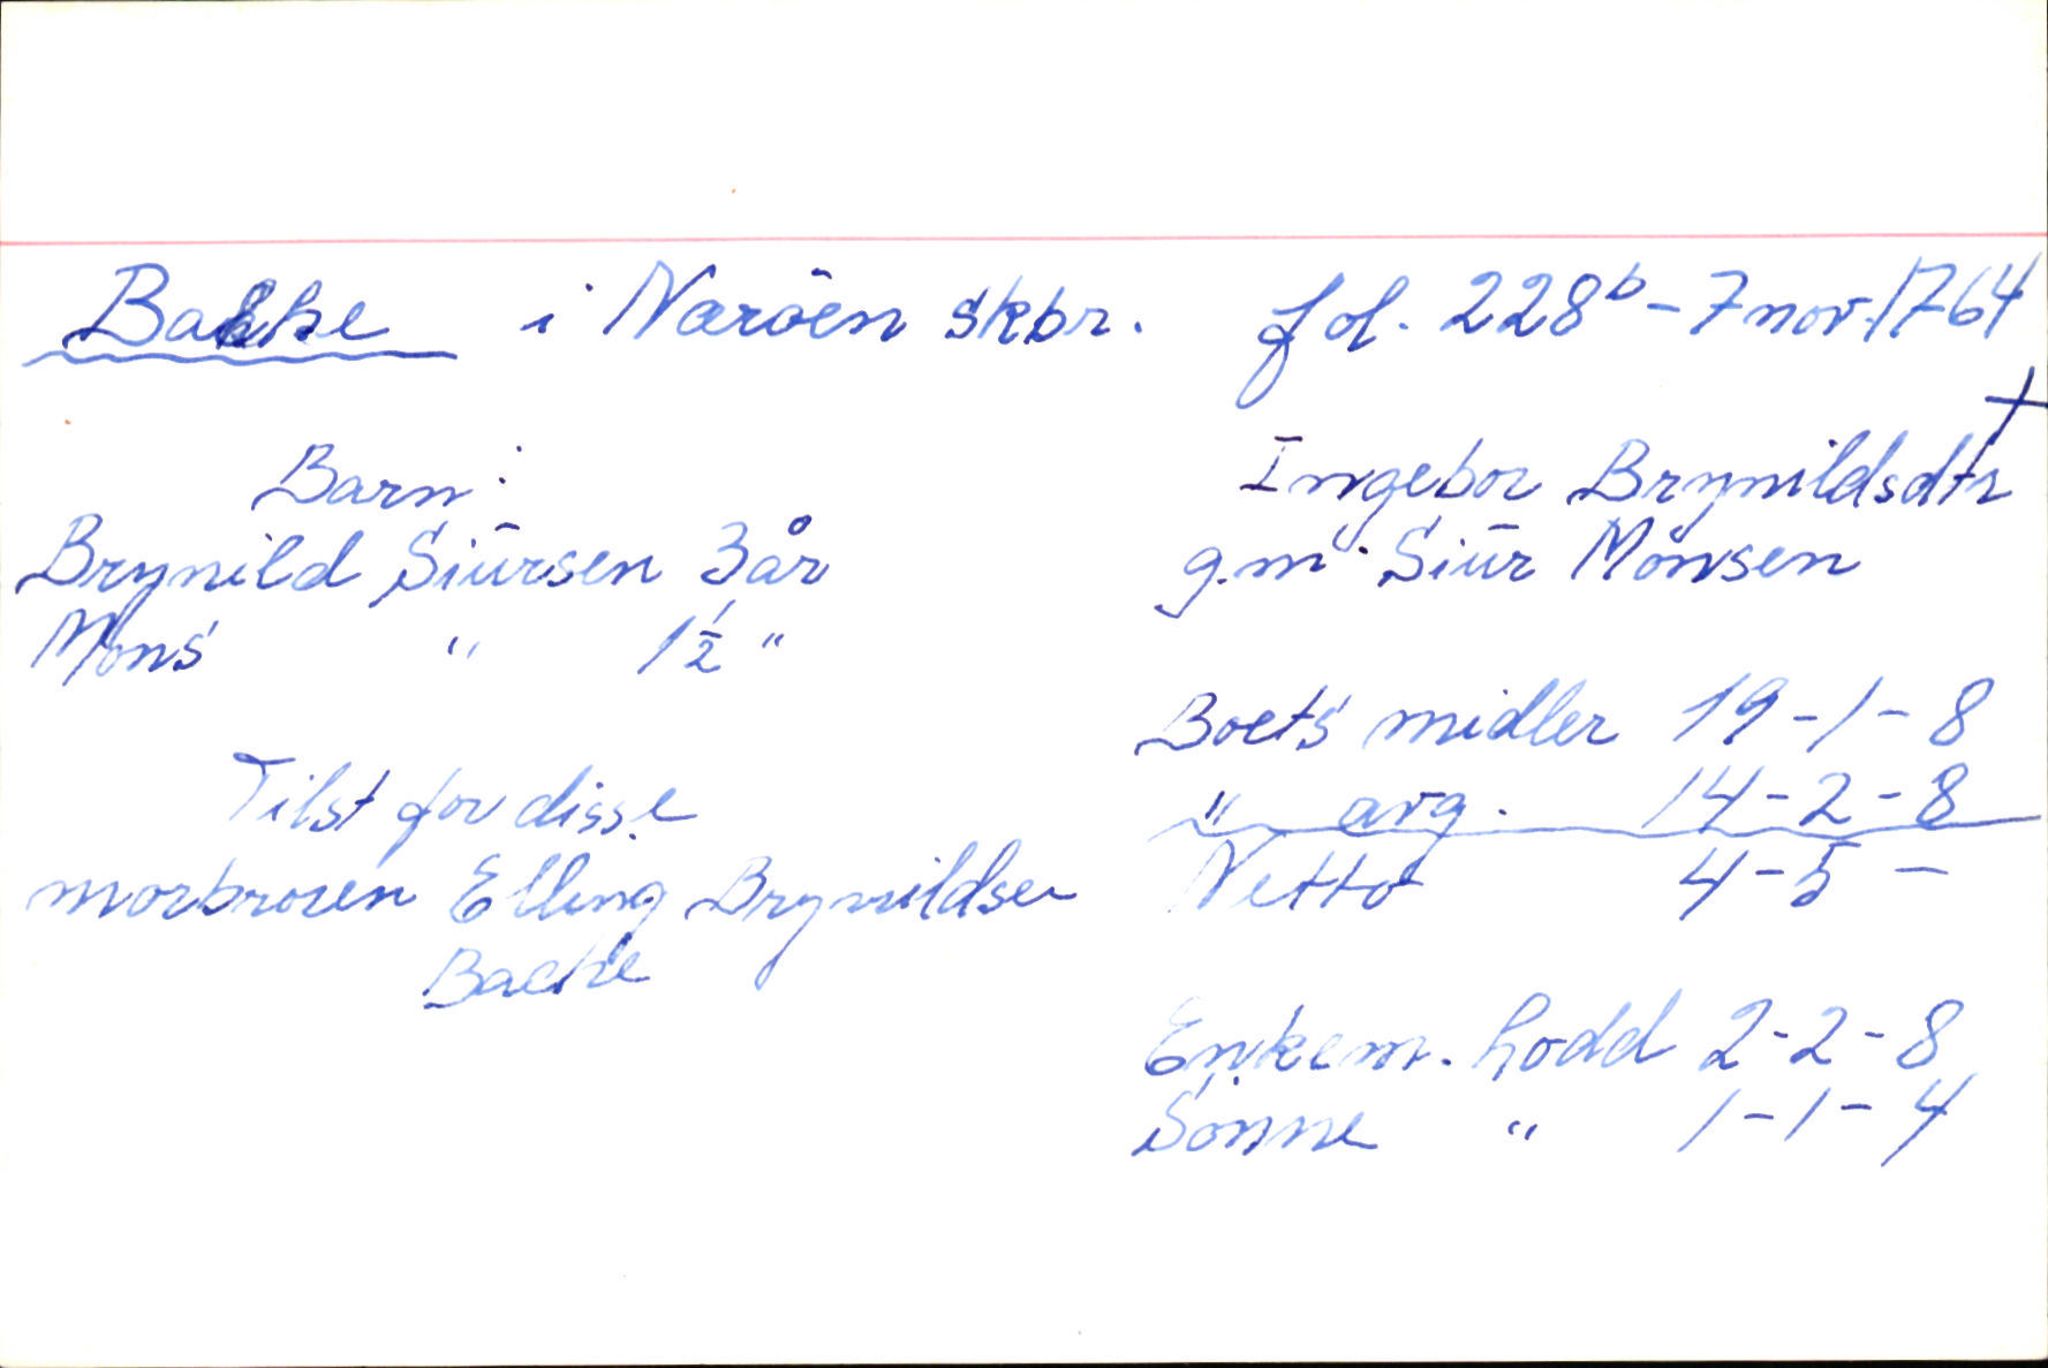 Bakke i Næröen skbr. fol. 228b - 7 nov. 1764
Barn:
Brynild Siürsen 3 år
Mons " 1½ "
Tilst for disse
morbroren Elling Brynildsen
Backe
†
Ingebor Brynildsdtr
g.m. Siür Mönsen
Boets midler 19-1-8
" avg. 14-2-8
Netto 4-5-
Enkem. lodd 2-2-8
Sönne " 1-1-4